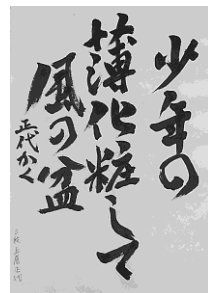 少年の
薄化粧して
風の盆
正代かく